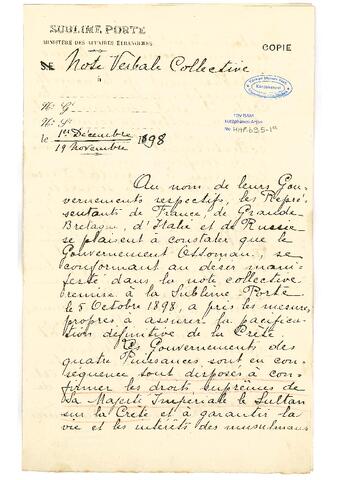 SUBLIME PORTE
MINISTÈRE DES AFFAIRES ÉTRANGÈRES
COPIE
Note Verbale Collective
à
TDV İSAM
Kütüphanesi Arşivi
No
Nº Gl
Nº Sl
le 1er Décembre / 19 Novembre 1898
Au nom de leurs Gou-
vernements respectifs, les Repré-
sentants de France, de Grande
Bretagne, d'Italie et de Russie
se plaisent à constater que le
Gouvernement Ottoman, se
conformant au désir mani-
festé dans la note collective
remise à la Sublime Porte
le 5 Octobre 1898, a pris les mesures
propres à assurer la pacifica-
tion définitive de la Crète.
Les Gouvernements des
quatre Puissances sont en con-
séquence sont disposés à con-
firmer les droits suprêmes de
Sa Majesté Impériale le Sultan
sur la Crète et à garantir la
vie et les intérêts des musulmans